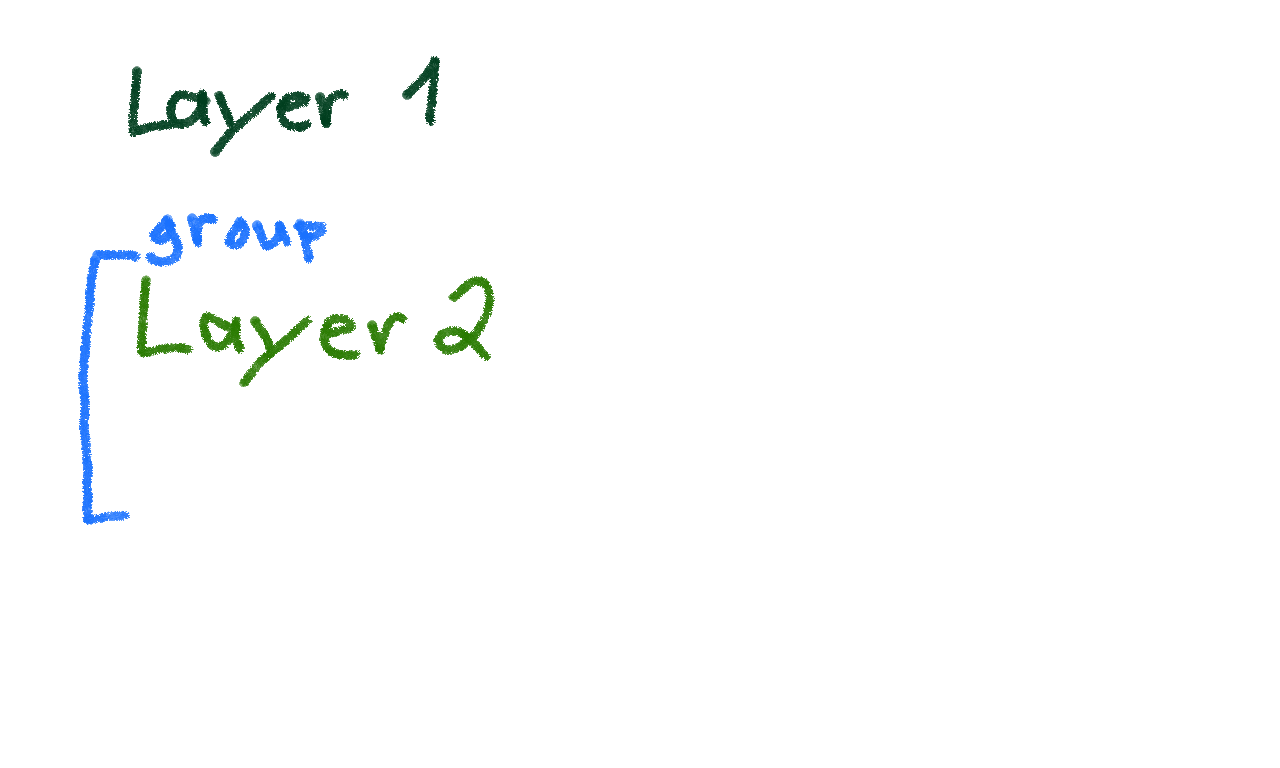 Layer 1
group
Layer 2